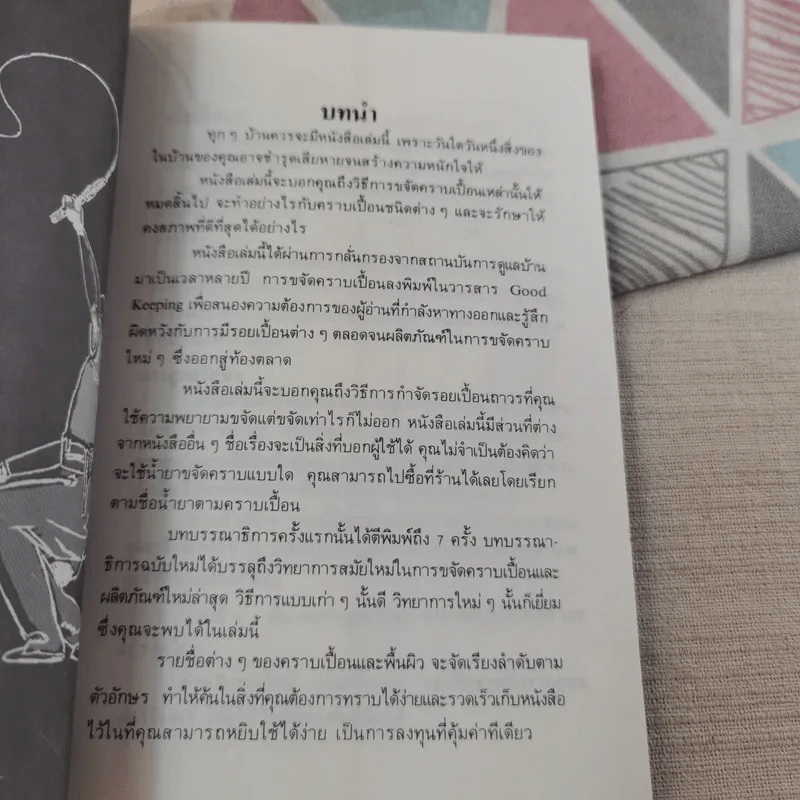 บทนำ
ทุก ๆ บ้านควรจะมีหนังสือเล่มนี้ เพราะวันใดวันหนึ่งสิ่งของ
ในบ้านของคุณอาจชำรุดเสียหายจนสร้างความหนักใจให้
หนังสือเล่มนี้จะบอกคุณถึงวิธีการขจัดคราบเปื้อนเหล่านั้นให้
หมดสิ้นไป จะทำอย่างไรกับคราบเปื้อนชนิดต่าง ๆ และจะรักษาให้
คงสภาพที่ดีที่สุดได้อย่างไร
หนังสือเล่มนี้ได้ผ่านการกลั่นกรองจากสถานบันการดูแลบ้าน
มาเป็นเวลาหลายปี การขจัดคราบเปื้อนลงพิมพ์ในวารสาร Good
Keeping เพื่อสนองความต้องการของผู้อ่านที่กำลังหาทางออกและรู้สึก
ผิดหวังกับการมีรอยเปื้อนต่าง ๆ ตลอดจนผลิตภัณฑ์ในการขจัดคราบ
ใหม่ ๆ ซึ่งออกสู่ท้องตลาด
หนังสือเล่มนี้จะบอกคุณถึงวิธีการกำจัดรอยเปื้อนถาวรที่คุณ
ใช้ความพยายามขจัดแต่ขจัดเท่าไรก็ไม่ออก หนังสือเล่มนี้มีส่วนที่ต่าง
จากหนังสืออื่น ๆ ชื่อเรื่องจะเป็นสิ่งที่บอกผู้ใช้ได้ คุณไม่จำเป็นต้องคิดว่า
จะใช้น้ำยาขจัดคราบแบบใด คุณสามารถไปซื้อที่ร้านได้เลยโดยเรียก
ตามชื่อน้ำยาตามคราบเปื้อน
บทบรรณาธิการครั้งแรกนั้นได้ตีพิมพ์ถึง 7 ครั้ง บทบรรณา-
ธิการฉบับใหม่ได้บรรลุถึงวิทยาการสมัยใหม่ในการขจัดคราบเปื้อนและ
ผลิตภัณฑ์ใหม่ล่าสุด วิธีการแบบเก่า ๆ นั้นดี วิทยาการใหม่ ๆ นั้นก็เยี่ยม
ซึ่งคุณจะพบได้ในเล่มนี้
รายชื่อต่าง ๆ ของคราบเปื้อนและพื้นผิว จะจัดเรียงลำดับตาม
ตัวอักษร ทำให้ค้นในสิ่งที่คุณต้องการทราบได้ง่ายและรวดเร็วเก็บหนังสือ
ไว้ในที่คุณสามารถหยิบใช้ได้ง่าย เป็นการลงทุนที่คุ้มค่าทีเดียว